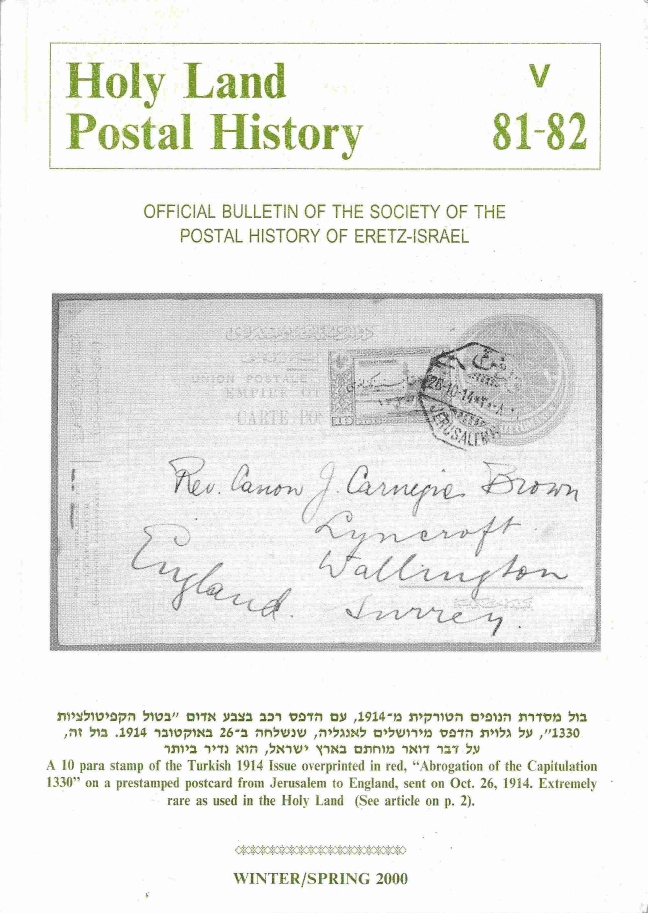 Holy Land
Postal History
V
81-82
OFFICIAL BULLETIN OF THE SOCIETY OF THE
POSTAL HISTORY OF ERETZ-ISRAEL
UNION POSTALE
EMPIRE
CARTE PO
26-10-14
JERUSALEM
Rev. Canon J. Carnegie Brown
Lyncroft
Wallington
England. Surrey.
בול מסדרת הנופים הטורקית מ־1914, עם הדפס רכב בצבע אדום "בטול הקפיטולציות
1330", על גלוית הדפס מירושלים לאנגליה, שנשלחה ב־26 באוקטובר 1914. בול זה,
על דבר דואר מוחתם בארץ ישראל, הוא נדיר ביותר
A 10 para stamp of the Turkish 1914 Issue overprinted in red, "Abrogation of the Capitulation
1330" on a prestamped postcard from Jerusalem to England, sent on Oct. 26, 1914. Extremely
rare as used in the Holy Land (See article on p. 2).
WINTER/SPRING 2000